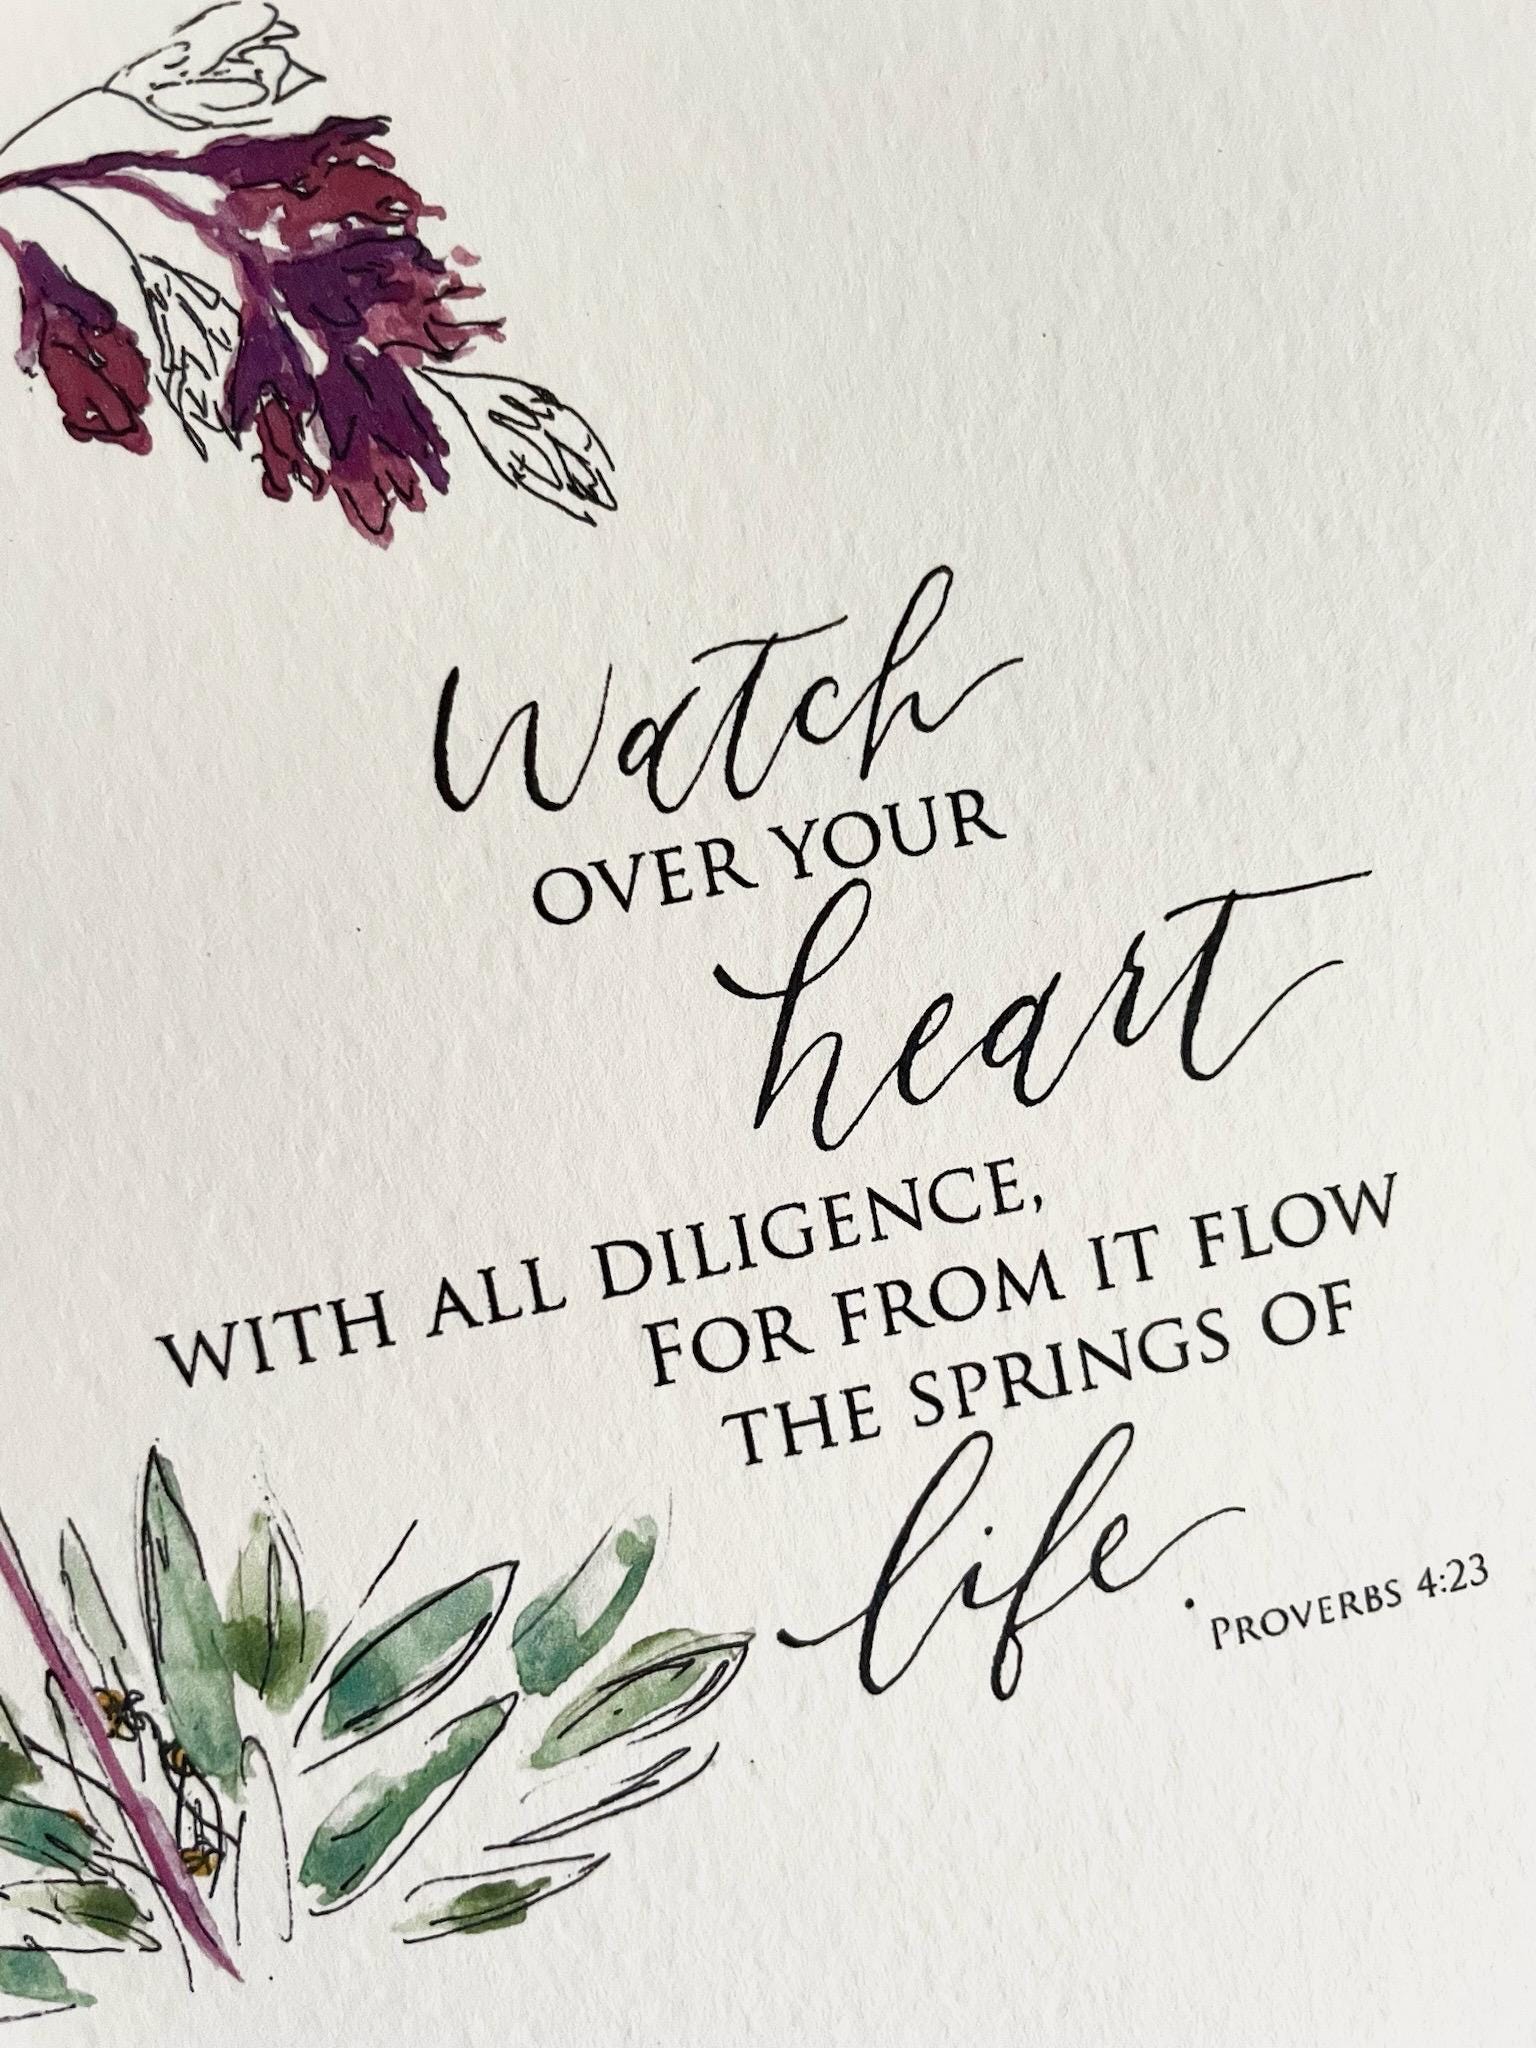 Watch
OVER YOUR
heart
WITH ALL DILIGENCE,
FOR FROM IT FLOW
THE SPRINGS OF
life.
PROVERBS 4:23